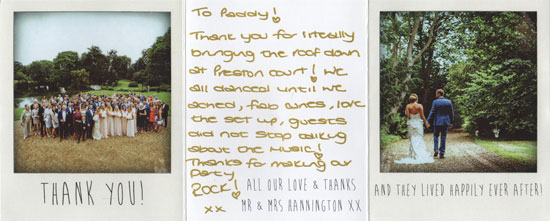 THANK YOU!
To Paddy!
Thank you for literally
bringing the roof down
at Preston Court! We
all danced until we
ached, fab tunes, love
the set up, guests
did not stop talking
about the Music!
Thanks for making our
Party
ROCK!
xx
ALL OUR LOVE & THANKS
MR & MRS HANNINGTON XX
AND THEY LIVED HAPPILY EVER AFTER!